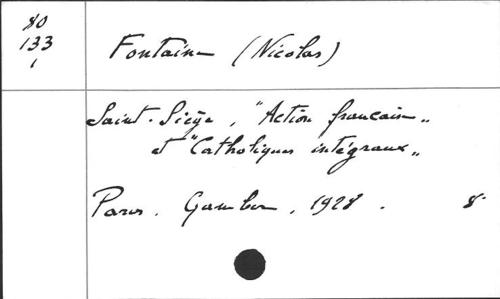 80
133
1
Fontaine (Nicolas)
Saint-Siège, "Action française"
et "Catholiques intégraux"
Paris. Gamber. 1928. 8°